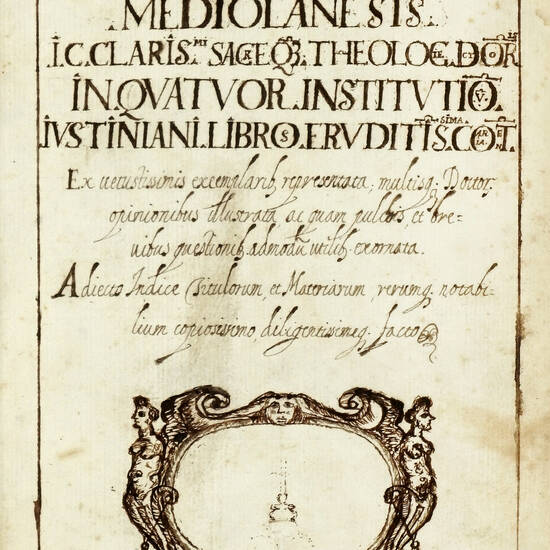 MEDIOLANESIS
I.C.CLARIS.MI SACRÆQ3.THEOLOGIE.DOCTOR
IN.QVATVOR.INSTITVTIONV̄.
IVSTINIANI.LIBROS.ERVDITISSIMA.COMENTARIA.
Ex uetustissimis exemplarib, repræsentata; multisq; Doctor.
opinionibus illustrata ac quam pulcris, et bre-
uibus quæstionib. admodū utilib. exornata.
Adiecto Indice Titulorum, et Materiarum, rerumq. notabi-
lium copiosissimo, diligentissimeq. facto